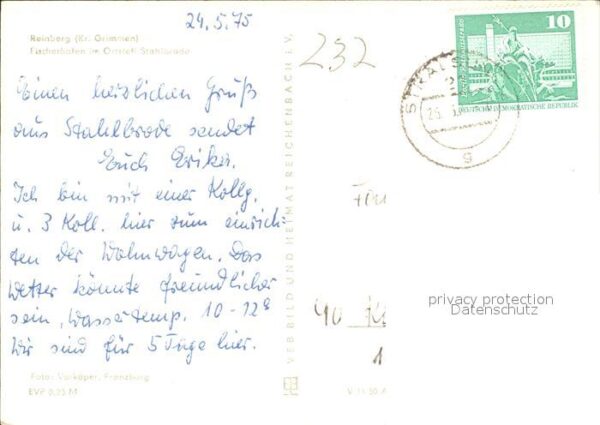 24.5.75
Reinberg (Kr. Grimmen)
Fischerhafen im Ortsteil Stahlbrode
Einen herzlichen Gruß
aus Stahlbrode sendet
Euch Erika.
Ich bin mit einer Kollg.
u. 3 Koll. hier zum einrich-
ten der Wohnwagen. Das
Wetter könnte freundlicher
sein, Wassertemp. 10-12°
Wir sind für 5 Tage hier.
Foto: Vorköper, Franzburg
EVP 0,25 M
VEB BILD UND HEIMAT REICHENBACH i. V.
232
10
DEUTSCHE DEMOKRATISCHE REPUBLIK
g
40
1
V 11 50 A
privacy protection
Datenschutz